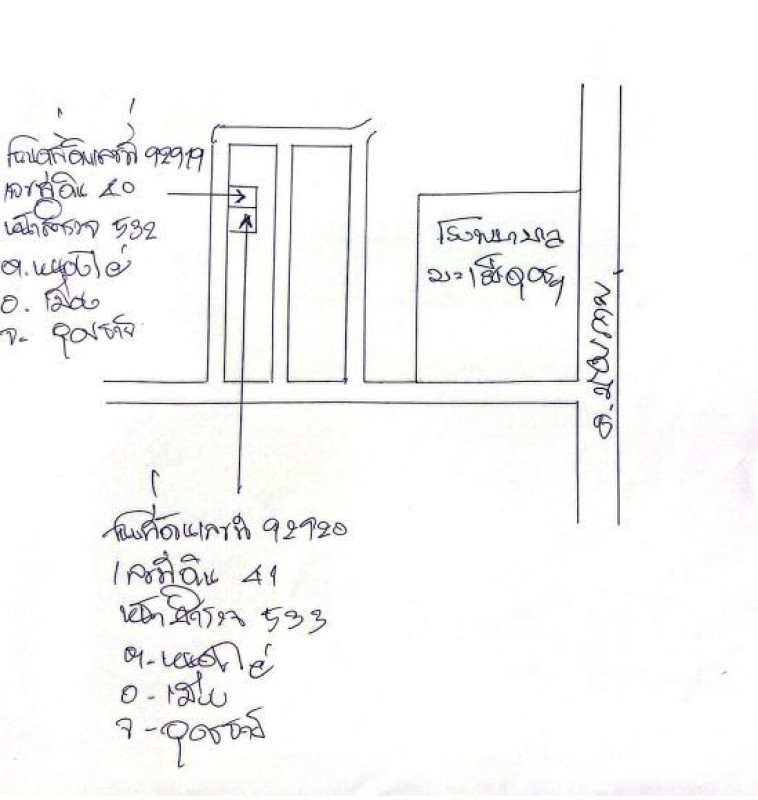 โฉนดที่ดินเลขที่ 92919
เลขที่ดิน 40
หน้าสำรวจ 532
ต.หมูม่น
อ. เมือง
จ. อุดรธานี
โรงพยาบาล
มะเร็งอุดรฯ
โฉนดที่ดินเลขที่ 92920
เลขที่ดิน 41
หน้าสำรวจ 533
อ. เมือง
จ. อุดรธานี